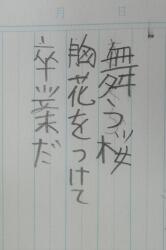 月　日
舞う桜
胸花をつけて
卒業だ